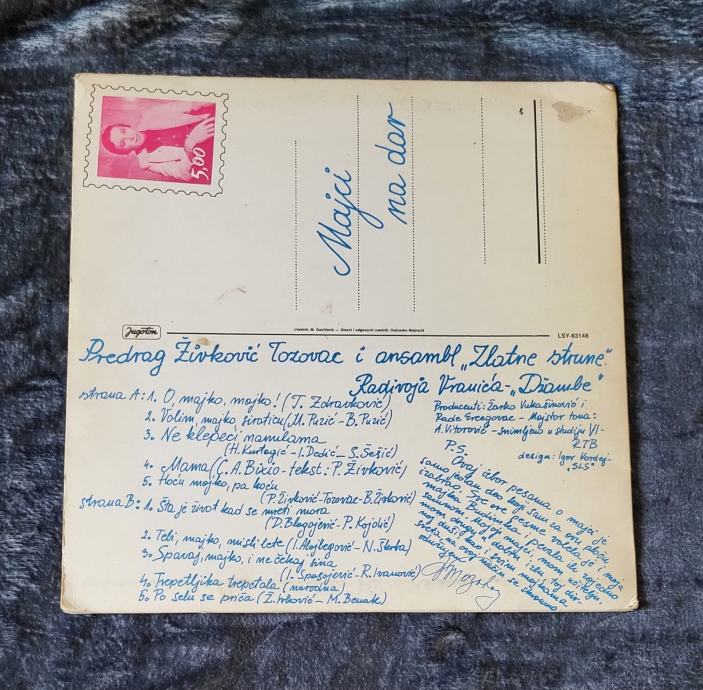 5,00
Majci
na dar
Jugoton
Urednik: M. Gavrilović — Glavni i odgovorni urednik: Dubravko Majnarić
LSY-63148
Predrag Živković Tozovac i ansambl „Zlatne strune“
Radivoja Vranića-„Džambe“
strana A: 1. O, majko, majko! (T. Zdravković)
2. Volim, majko, siroticu (M. Puzić-B. Puzić)
3. Ne klepeći nanulama
(H. Kurtagić-I. Dedić-S. Šešić)
4. Mama (C. A. Bixio-tekst: P. Živković)
5. Hoću majko, pa hoću
(P. Živković-Tozovac-B. Živković)
strana B: 1. Šta je život kad se mreti mora
(D. Blagojević-P. Kojolić)
2. Tebi, majko, misli lete (I. N. Škrba)
3. Spavaj, majko, i ne čekaj sina
(I. Spasojević-R. Ivanović)
4. Trepetljika trepetala (narodna)
5. Po selu se priča (Ž. Ivković-M. Benak)
Producenti: Žarko Vukašinović i
Rade Ercegovac - Majstor tona:
A. Vitorović - snimljeno u studiju VI-
RTB
design: Igor Kordej-
„SLS“
P.S.
Ovaj izbor pesama o majci je
samo jedan deo koji sam za ovu ploču
izabrao. Sve ove pesme volela je i moja
majka Budimka i pevala ih zajedno
samnom. Mojoj majci, mom učitelju,
mom drugu i koliko i toj
noj duši, kao i svim majkama
sveta na ovaj način se skromno
odužujem!